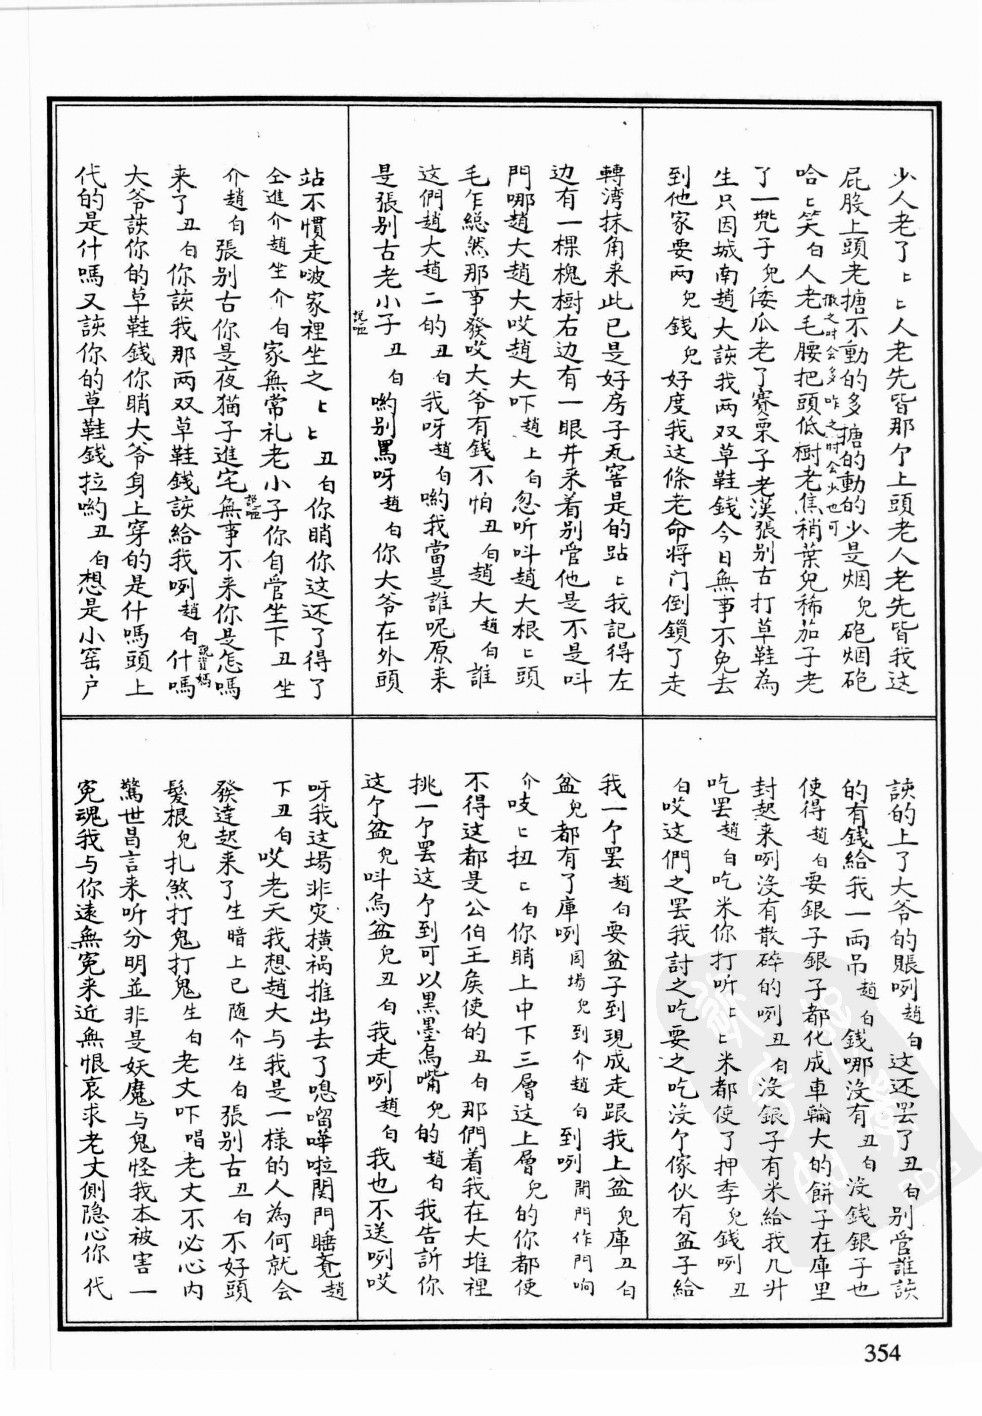 少人老了ㄴㄴ人老先皆那个上頭老人老先皆我这
屁股上頭老搪不動的多搪的動的少是烟兒砲烟砲
撒之时会多咋之时会少也可
哈ㄴ笑白人老毛腰把頭低樹老焦稍葉兒稀茄子老
了一兜子兒倭瓜老了賽栗子老漢張别古打草鞋為
生只因城南趙大該我两双草鞋錢今日無事不免去
到他家要两兒錢兒好度我这條老命将门倒鎖了走
轉湾抹角来此已是好房子瓦窖是的跕ㄴ我記得左
边有一棵槐樹右边有一眼井来着别管他是不是呌
門哪趙大趙大哎趙大吓趙上白忽听呌趙大根ㄴ頭
毛乍縂然那事發哎大爷有錢不怕丑白趙大趙白誰
这們趙大趙二的丑白我呀趙白喲我當是誰呢原来
是張别古老小子說噁丑白喲别罵呀趙白你大爷在外頭
站不慣走啵家裡坐之ㄴㄴ丑白你睄你这还了得了
仝進介趙坐介白家無常礼老小子你自管坐下丑坐
介趙白張别古你是夜猫子進宅說噁無事不来你是怎嗎
来了丑白你該我那两双草鞋錢該給我咧趙白說貨嗎什嗎
大爷該你的草鞋錢你睄大爷身上穿的是什嗎頭上
代的是什嗎又該你的草鞋錢拉喲丑白想是小窑户
該的上了大爷的賬咧趙白这还罢了丑白别管誰該
的有錢給我一両吊趙白錢哪沒有丑白沒錢銀子也
使得趙白要銀子銀子都化成車輪大的餅子在庫里
封起来咧沒有散碎的咧丑白沒銀子有米給我几升
吃罢趙白吃米你打听ㄴㄴ米都使了押季兒錢咧丑
白哎这們之罢我討之吃要之吃沒个傢伙有盆子給
我一个罢趙白要盆子到現成走跟我上盆兒庫丑白
盆兒都有了庫咧圆塲兒到介趙白到咧開門作門响
介吱ㄴ扭ㄴ白你睄上中下三層这上層兒的你都使
不得这都是公伯王侯使的丑白那們着我在大堆裡
挑一个罢这个到可以黑墨烏嘴兒的趙白我告訴你
这个盆兒呌烏盆兒丑白我走咧趙白我也不送咧哎
呀我这場非灾横祸推出去了唿嚠嘩啦関門睡覔趙
下丑白哎老天我想趙大与我是一様的人為何就会
發達起来了生暗上已随介生白張别古丑白不好頭
髮根兒扎煞打鬼打鬼生白老丈吓唱老丈不必心内
驚世昌言来听分明並非是妖魔与鬼怪我本被害一
冤魂我与你遠無冤来近無恨哀求老丈惻隐心你代
354